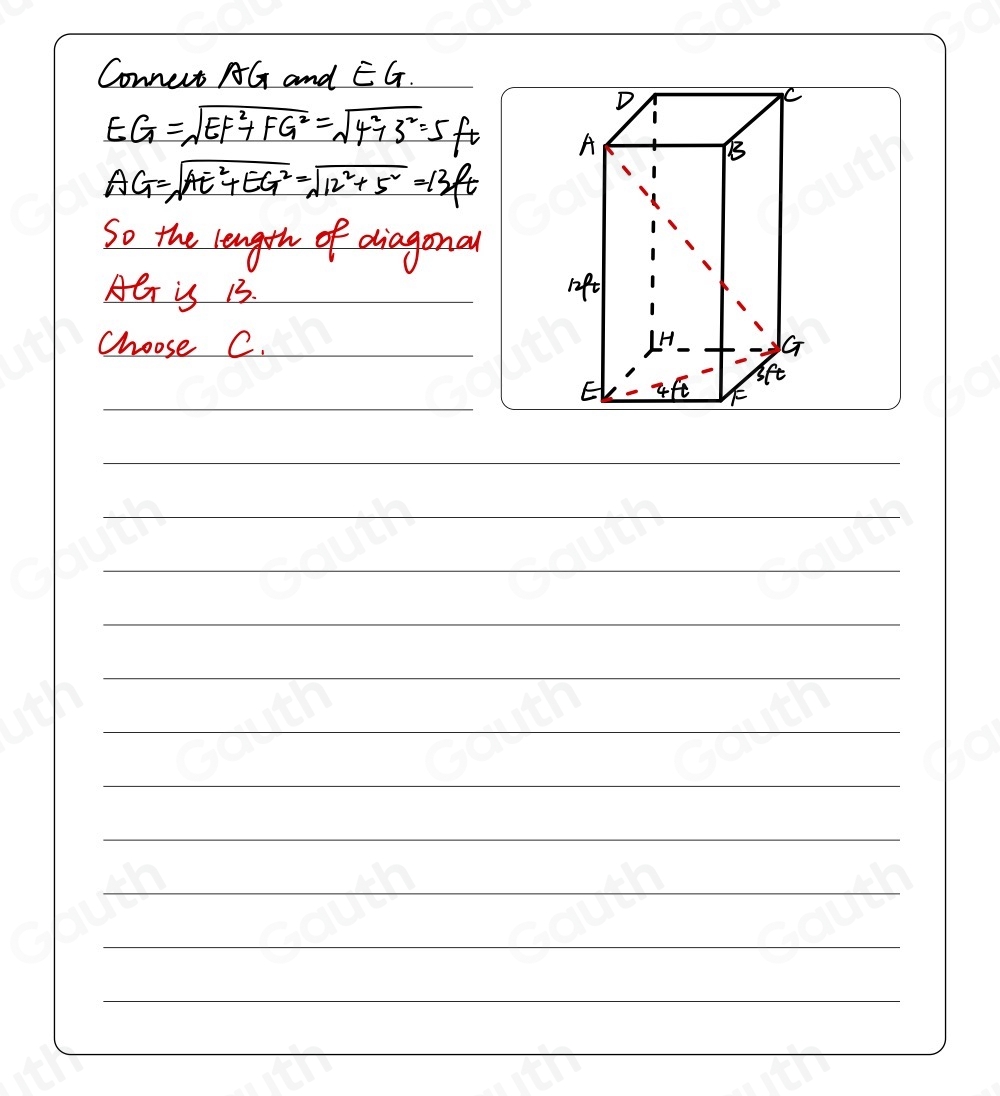 Connect AG and EG.
EG = √EF²+FG² = √4²+3² = 5 ft
AG = √AE²+EG² = √12²+5² = 13ft
So the length of diagonal
AG is 13.
Choose C.
D
C
A
B
12ft
H
G
3ft
E
4ft
F
Gauth